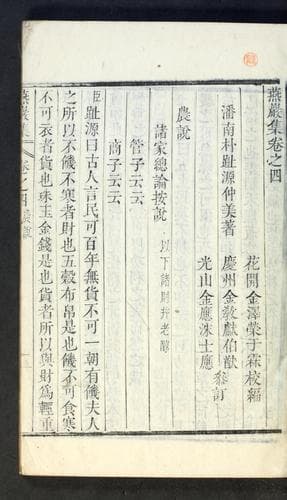 燕巖集卷之四
花開金澤榮于霖校編
潘南朴趾源仲美著
慶州金敎獻伯猷
光山金應洙士應
參訂
農說
諸家總論按說
以下諸財幷老醇
管子云云
商子云云
臣趾源曰古人言民可百年無貨不可一朝有饑夫人
之所以不饑不寒者財也五穀布帛是也饑不可食寒
不可衣者貨也珠玉金錢是也貨者所以與財爲輕重
燕巖集
卷之四農說